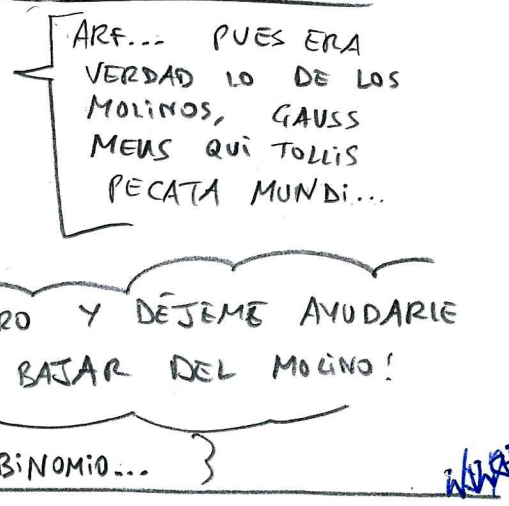 ARF... PUES ERA
VERDAD LO DE LOS
MOLINOS, GAUSS
MEUS QUI TOLLIS
PECATA MUNDI...
RO Y DÉJEME AYUDARLE
BAJAR DEL MOLINO!
BINOMIO...